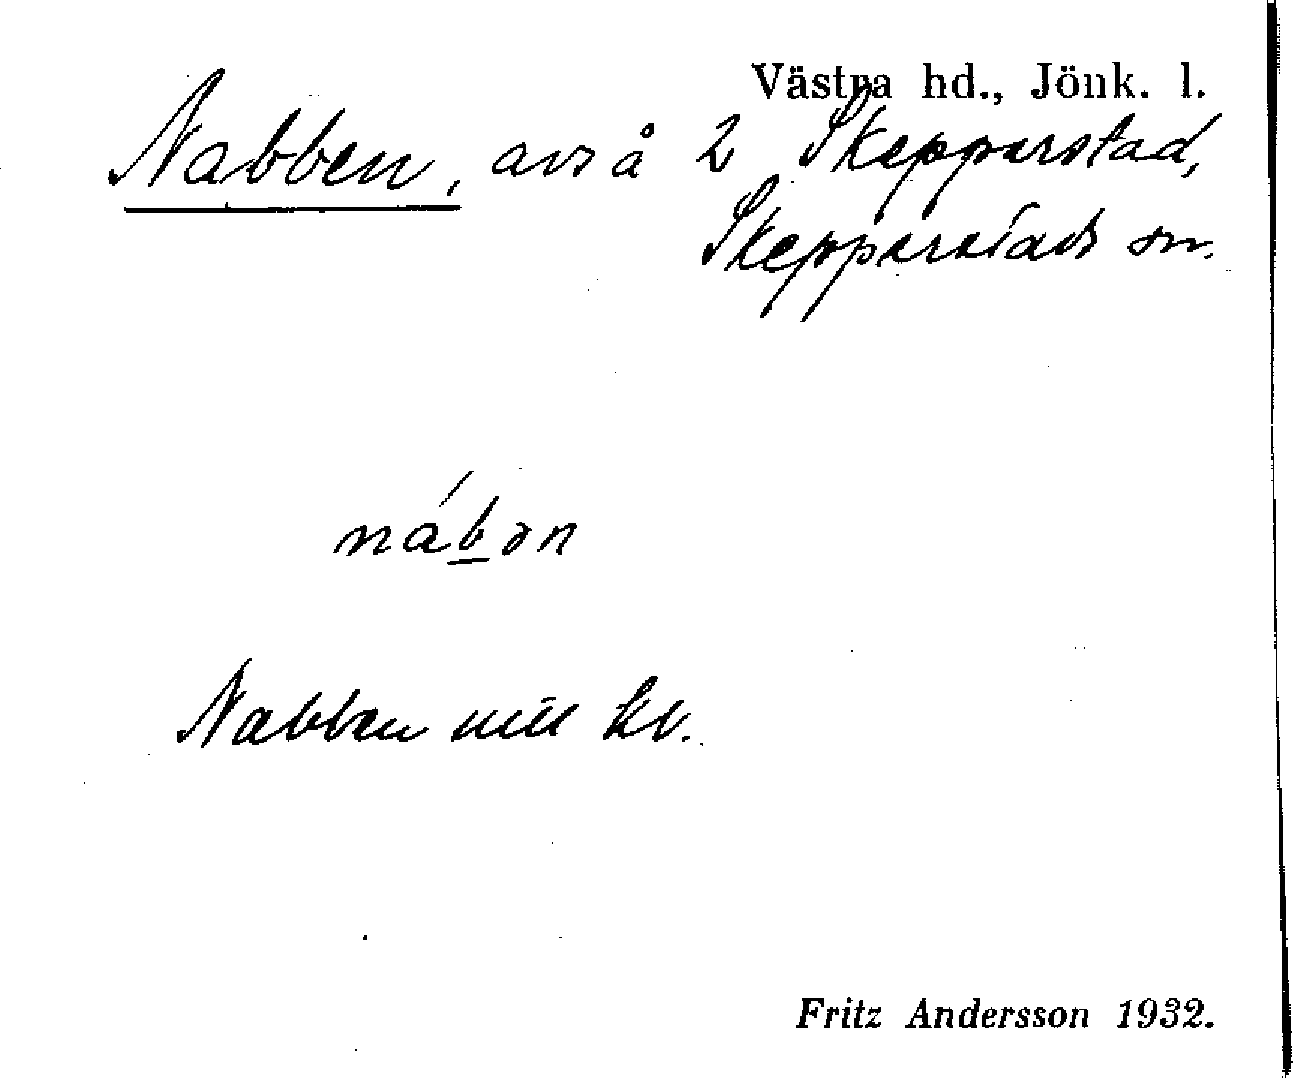 Västra hd., Jönk. l.
Nabben, avs å 2 Skepperstad,
Skepperstads sn.
nábən
Nabben
Fritz Andersson 1932.